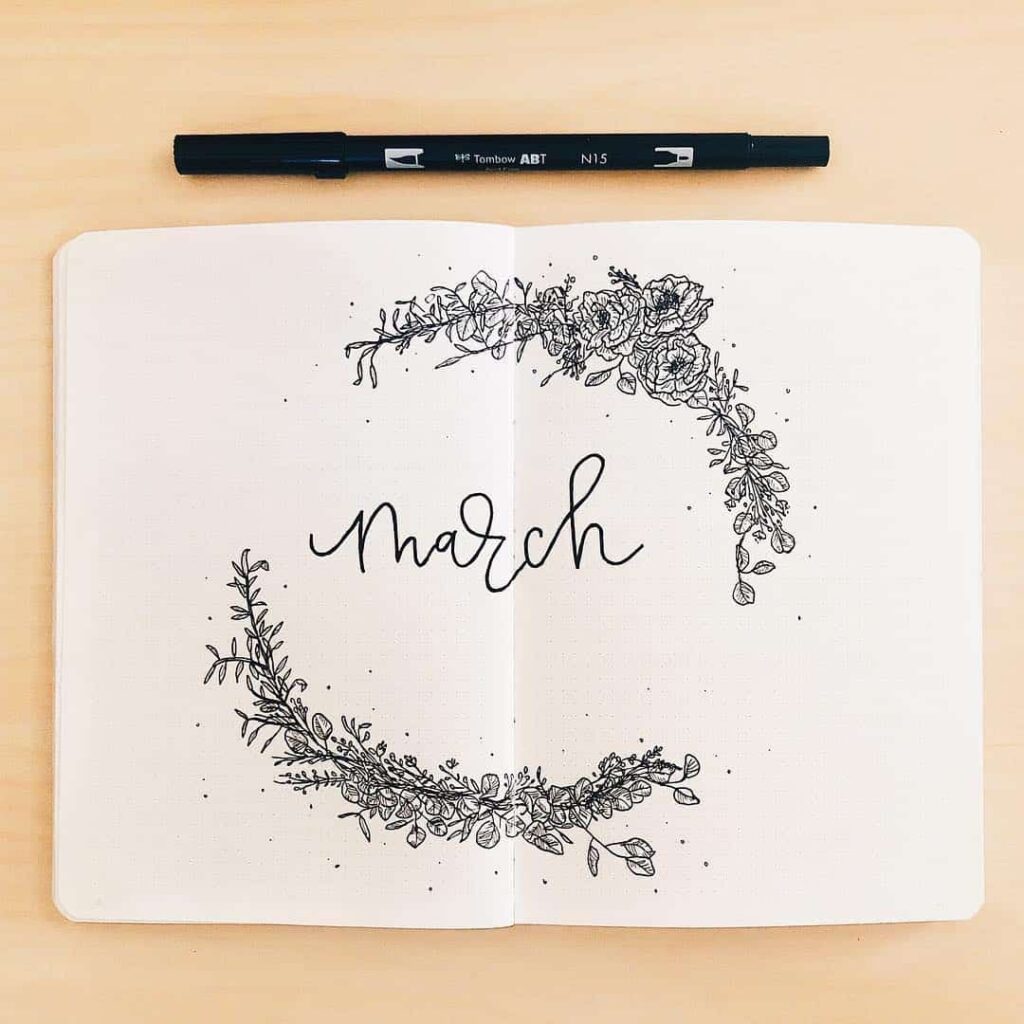 Tombow ABT N15
march